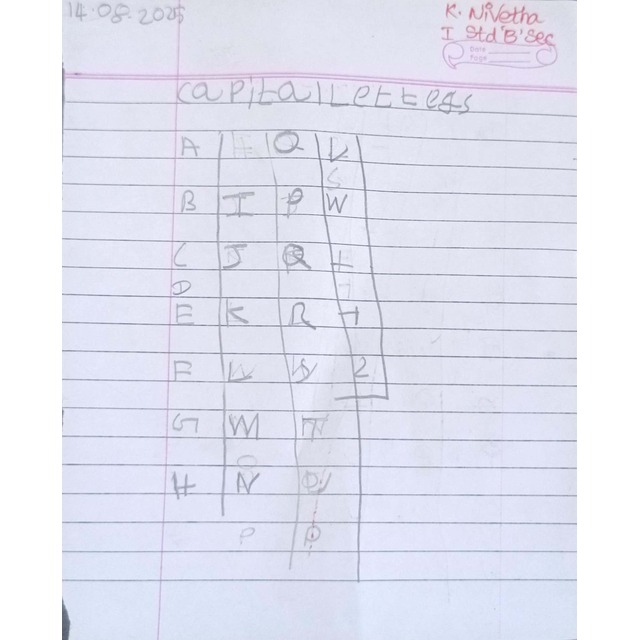 14.08.2025
K. Nivetha
I Std 'B' Sec
Date
Page
Capital Letters
A O V
S
B I P W
C J Q
D
E K R
F
G M T
H N
P P